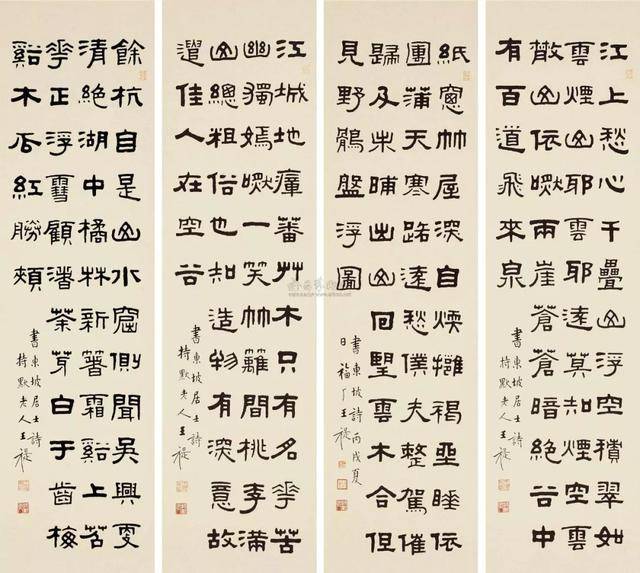 江上愁心千疊山浮空積翠如
雲煙山耶雲耶遠莫知煙空雲
散山依然兩崖蒼蒼暗絕谷中
有百道飛來泉
書東坡居士詩
持默老人王禔
紙窗竹屋深自煖擁褐坐睡依
團蒲天寒路遠愁僕夫整駕催
歸及未晡出山回望雲木合但
見野鶻盤浮圖
書東坡詩丙戌夏
日福厂王禔
江城地瘴蕃艸木只有名花苦
幽獨嫣然一笑竹籬間桃李滿
山總粗俗也知造物有深意故
遣佳人在空谷
書東坡居士詩
持默老人王禔
餘杭自是山水窟側聞吳興更
清絕湖中橘林新著霜谿上苕
花正浮雪顧渚茶芽白于齒梅
谿木瓜紅勝頰
書東坡居士詩
持默老人王禔